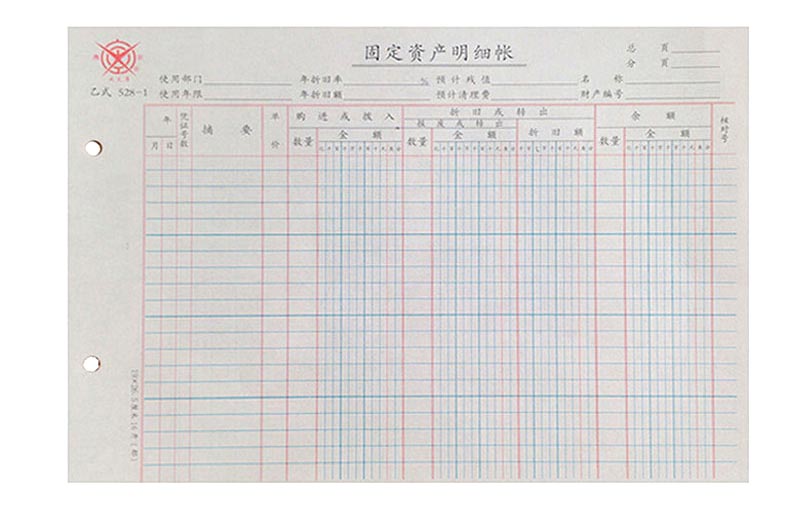 固定资产明细帐
总 页
分 页
使用部门 年折旧率 % 预计残值 名 称
乙式 528-1 使用年限 年折旧额 预计清理费 财产编号
年 凭证号数 摘 要 单价 购进或拨入 折旧或转出 余 额 核对号
报废或转出
月 日 数量 金 额 数量 金 额 折 旧 额 数量 金 额
19×26.5厘米16开(郑)